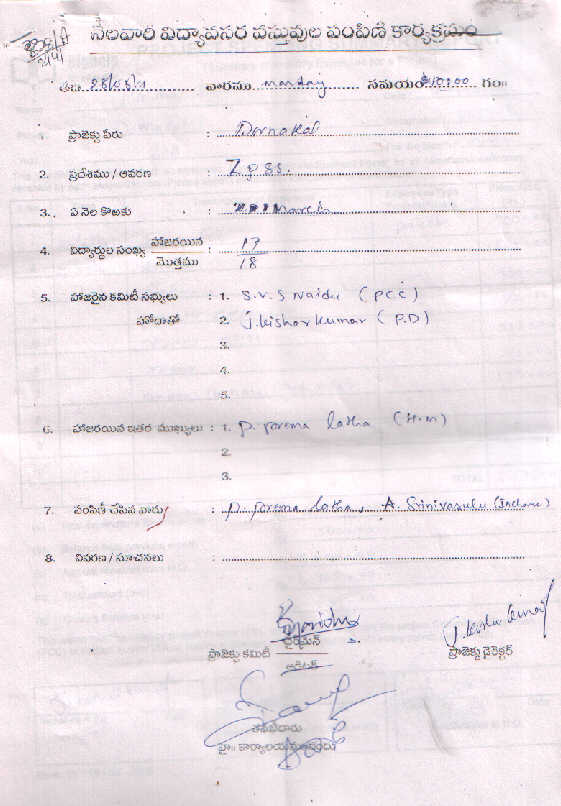 నెలవారి విద్యావసర వస్తువుల పంపిణి కార్యక్రమం
తేది: 28/03/11 వారము monday సమయం: 10:00 గం॥
ప్రాజెక్టు పేరు : Dornakal
2. ప్రదేశము / ఆవరణ : Z P SS.
3. ఏ నెల కొఱకు : March
4. విద్యార్థుల సంఖ్య హాజరయిన : 17
మొత్తము 18
5. హాజరైన కమిటీ సభ్యులు : 1. S.V.S Naidu (PCC)
హోదాతో 2. J. Kishor Kumar (P.D)
3.
4.
5.
6. హాజరయిన ఇతర ముఖ్యులు : 1. P. Prema latha (H.M)
2.
3.
7. పంపిణీ చేసిన వారు : P. Prema latha, A. Srinivasulu (Incharge)
8. వివరణ / సూచనలు :
ఛైర్మెన్
ప్రాజెక్టు కమిటీ
ఆడిటర్
J. Kishor Kumar
ప్రాజెక్టు డైరెక్టర్